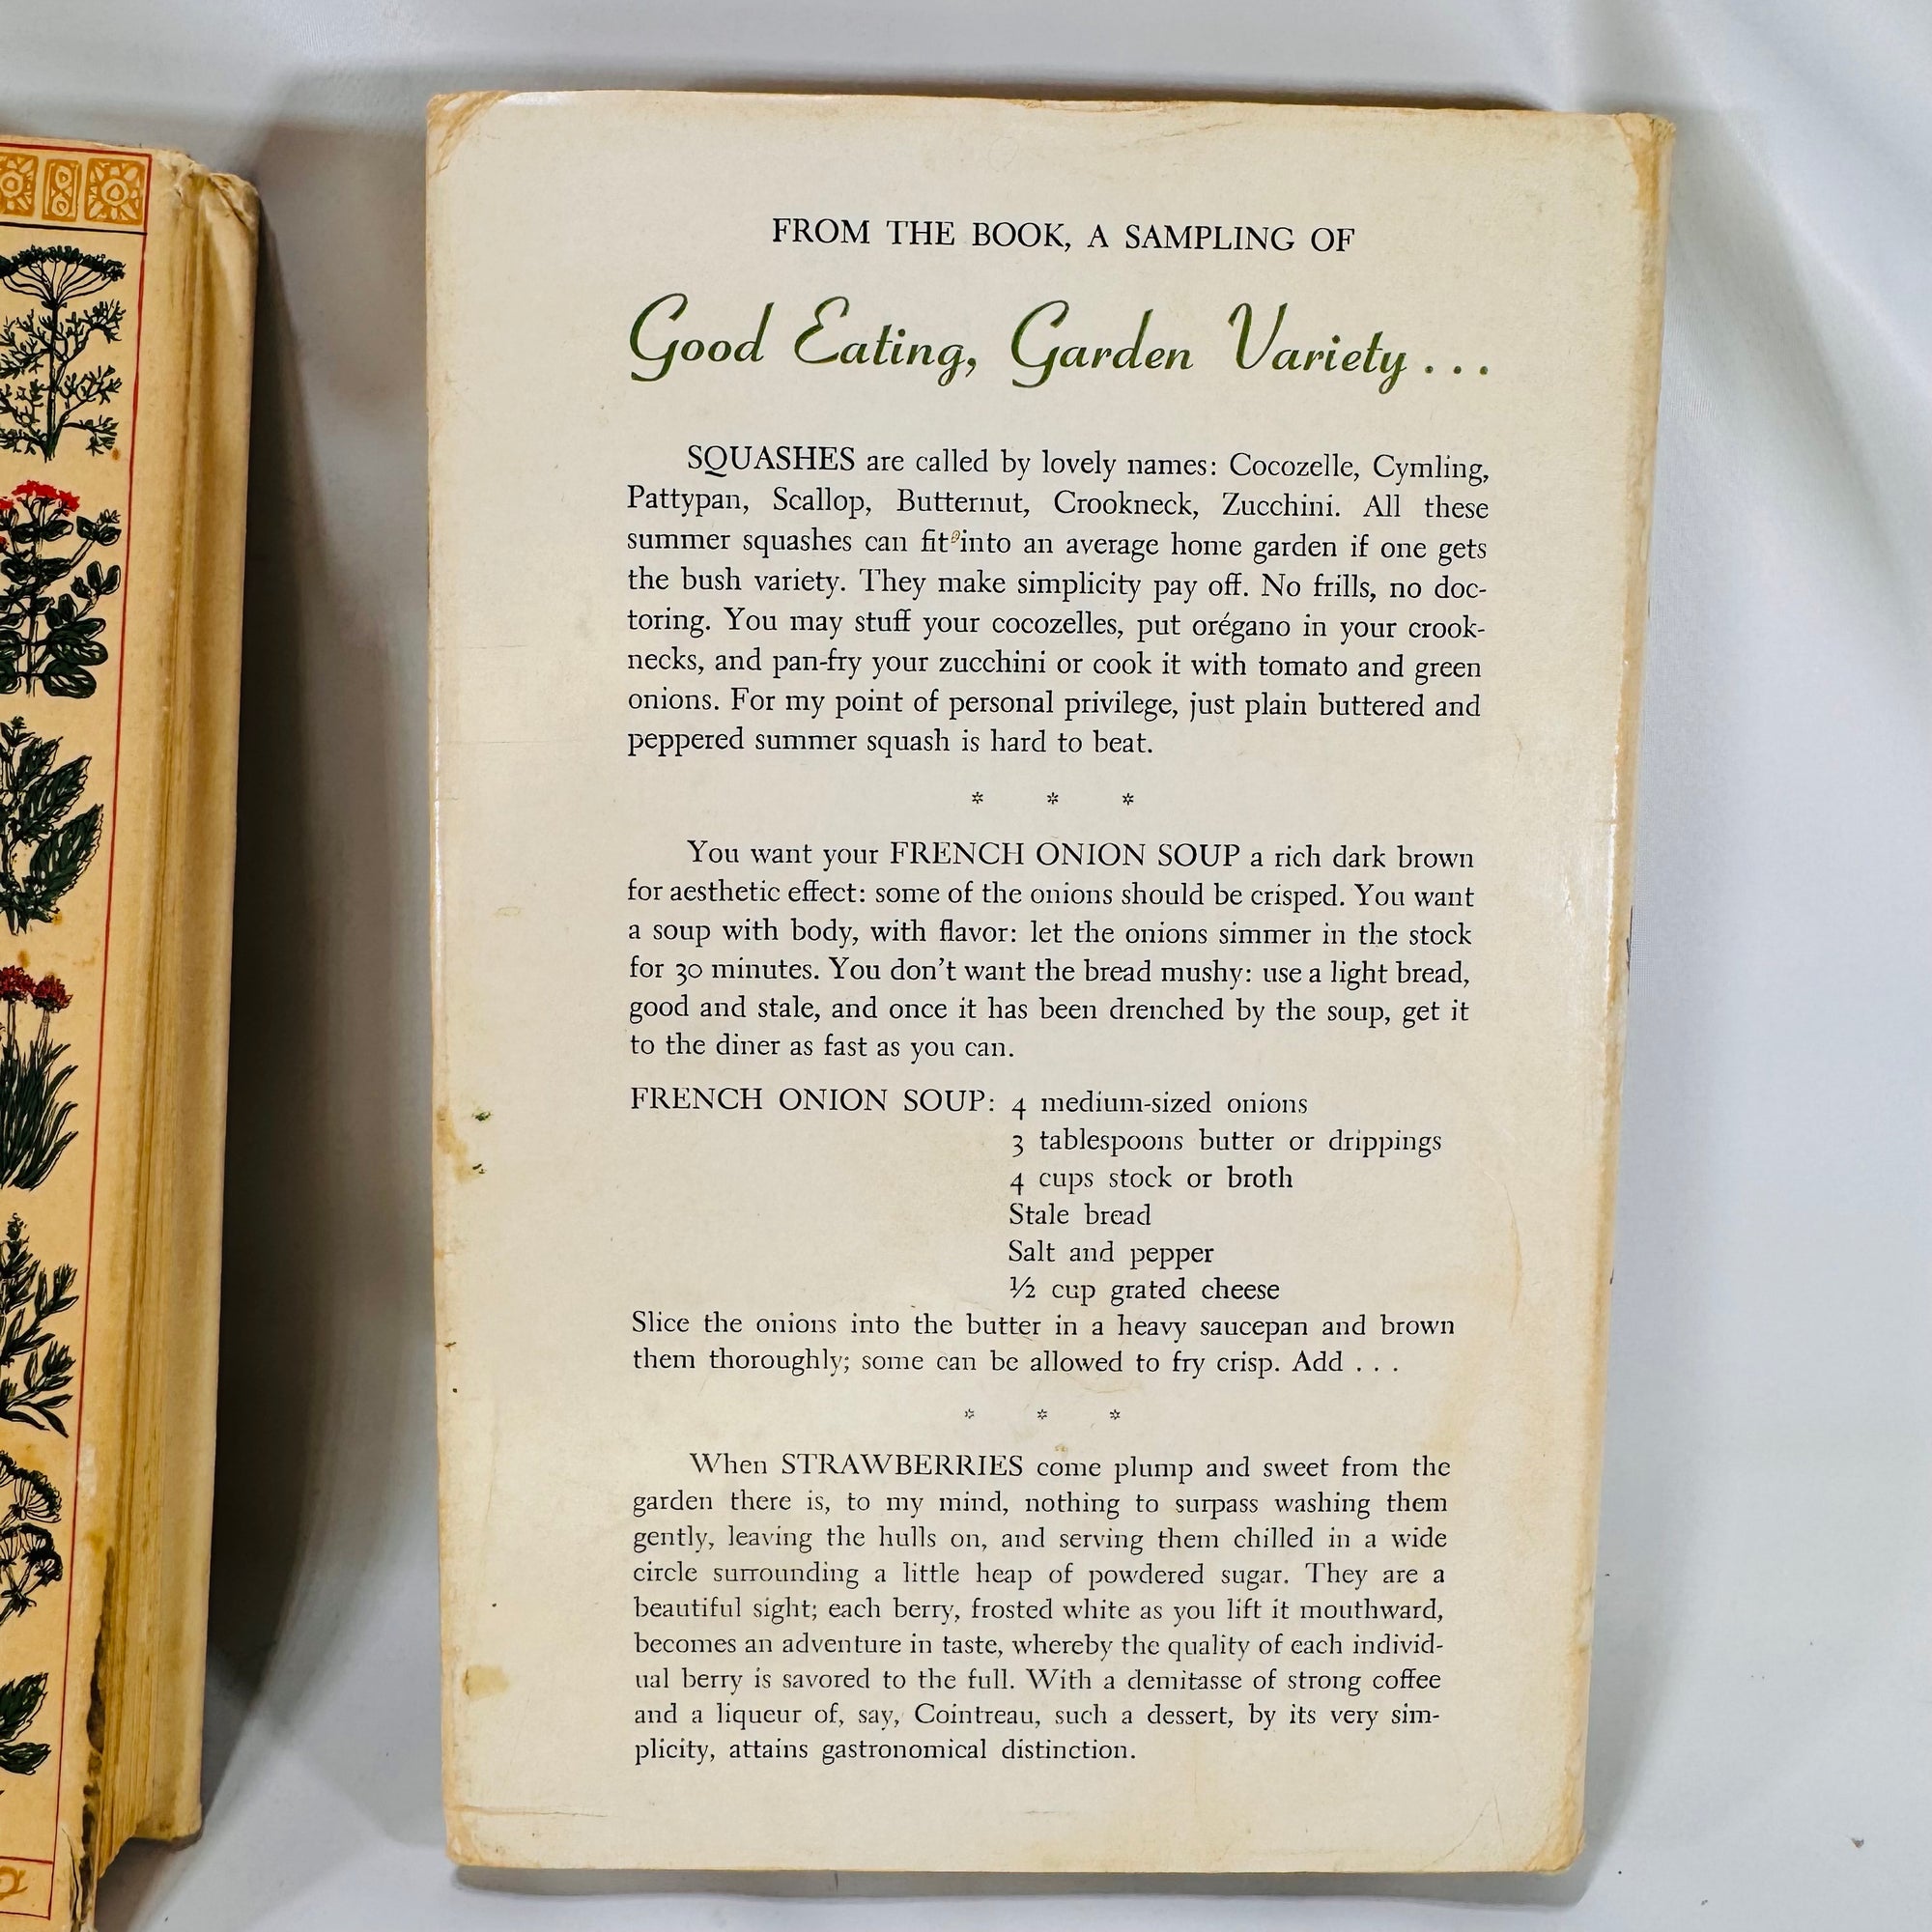 FROM THE BOOK, A SAMPLING OF
Good Eating, Garden Variety . . .
SQUASHES are called by lovely names: Cocozelle, Cymling,
Pattypan, Scallop, Butternut, Crookneck, Zucchini. All these
summer squashes can fit into an average home garden if one gets
the bush variety. They make simplicity pay off. No frills, no doc-
toring. You may stuff your cocozelles, put orégano in your crook-
necks, and pan-fry your zucchini or cook it with tomato and green
onions. For my point of personal privilege, just plain buttered and
peppered summer squash is hard to beat.
* * *
You want your FRENCH ONION SOUP a rich dark brown
for aesthetic effect: some of the onions should be crisped. You want
a soup with body, with flavor: let the onions simmer in the stock
for 30 minutes. You don't want the bread mushy: use a light bread,
good and stale, and once it has been drenched by the soup, get it
to the diner as fast as you can.
FRENCH ONION SOUP: 4 medium-sized onions
3 tablespoons butter or drippings
4 cups stock or broth
Stale bread
Salt and pepper
½ cup grated cheese
Slice the onions into the butter in a heavy saucepan and brown
them thoroughly; some can be allowed to fry crisp. Add . . .
* * *
When STRAWBERRIES come plump and sweet from the
garden there is, to my mind, nothing to surpass washing them
gently, leaving the hulls on, and serving them chilled in a wide
circle surrounding a little heap of powdered sugar. They are a
beautiful sight; each berry, frosted white as you lift it mouthward,
becomes an adventure in taste, whereby the quality of each individ-
ual berry is savored to the full. With a demitasse of strong coffee
and a liqueur of, say, Cointreau, such a dessert, by its very sim-
plicity, attains gastronomical distinction.